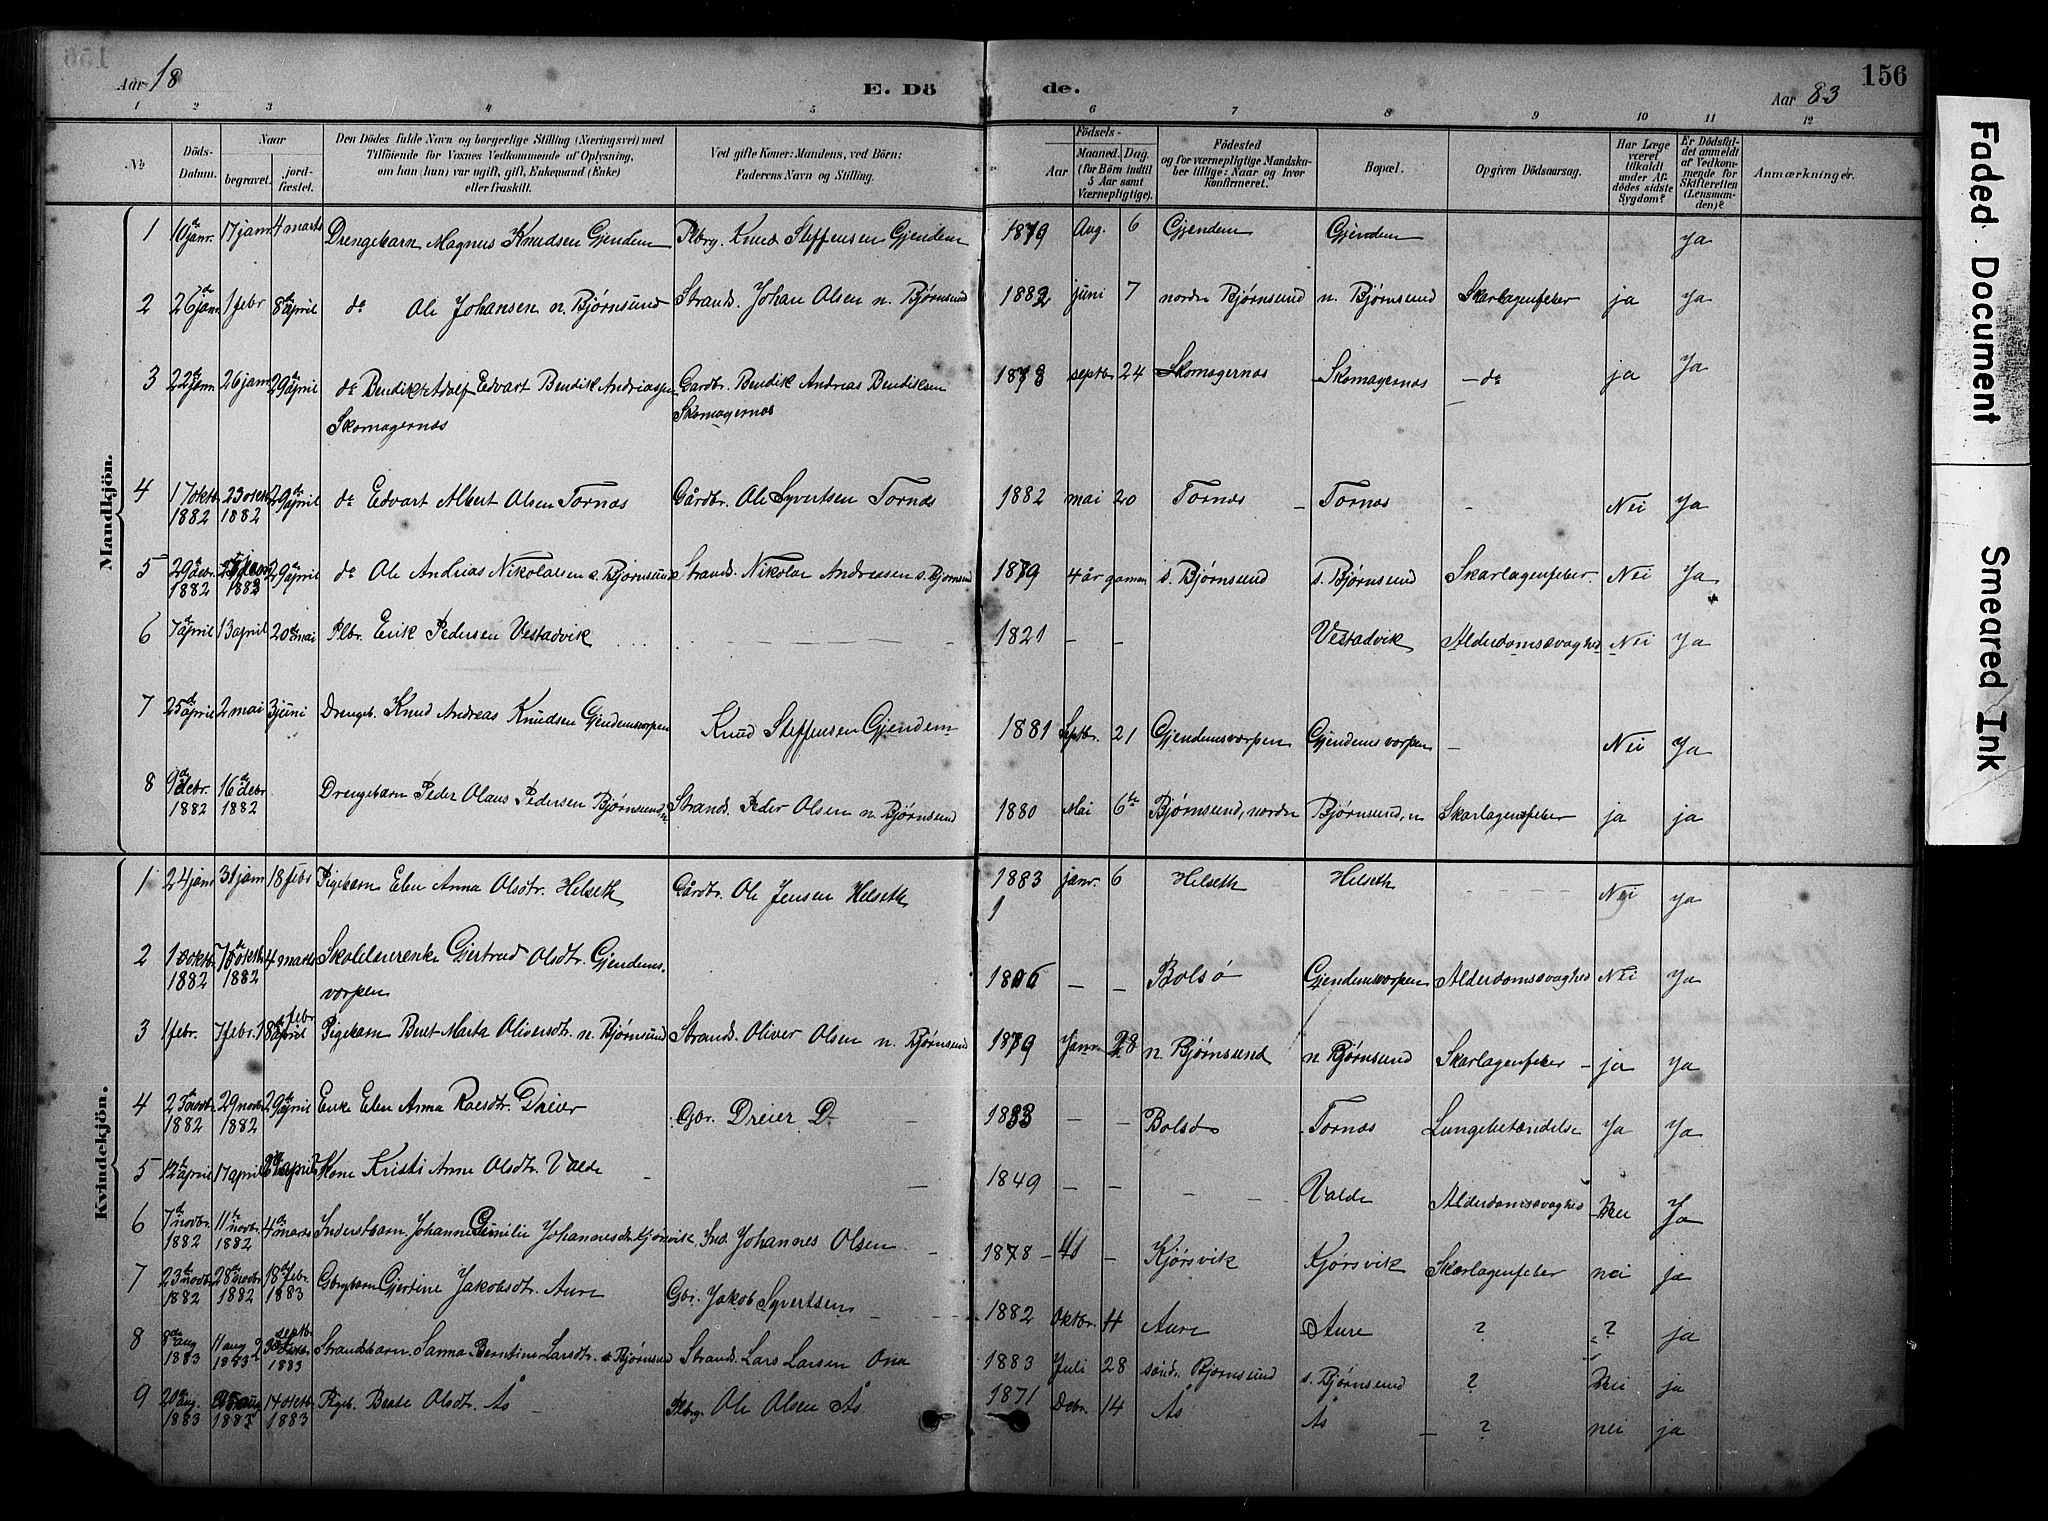 156
Aar 18
E. Dö
de.
Aar 83
1 2 3 4 5 6 7 8 9 10 11 12
№
Döds-
Datum.
Naar
begravet.
jord-
fæstet.
Den Dödes fulde Navn og borgerlige Stilling (Næringsvei) med
Tilföiende for Voxnes Vedkommende af Oplysning,
om han (hun) var ugift, gift, Enkemand (Enke)
eller fraskilt.
Ved gifte Koner: Mandens, ved Börn:
Faderens Navn og Stilling.
Födsels-
Aar
Maaned. Dag.
(for Börn indtil
5 Aar samt
Værnepligtige).
Födested
og for værnepligtige Mandska-
ber tillige: Naar og hvor
konfirmeret.
Bopæl.
Opgiven Dödsaarsag.
Har Læge
været
tilkaldt
under Af-
dödes sidste
Sygdom?
Er Dödsfal-
det anmeldt
af Vedkom-
mende for
Skifteretten
(Lensman-
den)?
Anmærkninger.
Mandkjön.
1 10de janr. 17 janr 4 marts Drengebarn Magnus Knudsen Gjendem Plbrg. Knud Steffensen Gjendem 1879 Aug. 6 Gjendem Gjendem Ja
2 26de janr 1 febr 8de april do Ole Johansen n. Bjørnsund Strands. Johan Olsen n. Bjørnsund 1882 juni 7 nordre Bjørnsund n. Bjørnsund Skarlagenfeber ja Ja
3 22de janr 26 janr 29de april do Bendikt Adolf Edvart Bendik Andriassen Gardbr. Bendik Andreas Bendiksen 1878 septbr. 24 Skomagernæs Skomagernæs – do ja Ja
Skomagernæs Skomagernæs
4 17 oktbr. 23 oktbr 29de april do Edvart Albert Olsen Tornæs Gårdbr. Ole Syvertsen Tornæs 1882 mai 20 Tornæs – Tornæs – Nei Ja
1882 1882
5 29de debr. janr 29de april do Ole Andrias Nikolaisen s. Bjørnsund Strands. Nikolai Andreasen s. Bjørnsund 1879 4 år gaman s. Bjørnsund s. Bjørnsund Skarlagenfeber. Nei Ja
1882 1883
6 7de april 13 april 20de mai Plbr. Erik Pedersen Vestadvik 1821 – – Vestadvik Alderdomssvaghed Nei Ja
7 25de april 2 mai 3 juni Drengeb. Knud Andreas Knudsen Gjendemsvorpen Knud Steffensen Gjendem 1881 Septbr. 21 Gjendemsvorpen Gjendemsvorpen – Nei Ja
8 9de debr. 16de debr Drengebarn Peder Olaus Pedersen Bjørnsund n Strands. Peder Olsen n. Bjørnsund 1880 Mai 6te Bjørnsund, nordre Bjørnsund, n Skarlagensfeber ja ja
1882 1882
Kvindekjön.
1 24 janr 31 janr 18 febr Pigebarn Elen Anna Olsdtr. Helseth Gårdbr. Ole Jensen Helseth 1883 janr. 6 Helseth Helseth Nei Ja
2 oktbr. oktbr 4 marts Skolelærerenke Gjertrud Olsdtr. Gjendems- 1806 – – Bolsø Gjendemsvorpen Alderdomssvaghed Nei Ja
1882 1882 vorpen
3 1 febr. 7 febr. 18 febr Pigebarn Beret Marta Oliversdtr. n. Bjørnsund Strands. Oliver Olsen n. Bjørnsund 1879 Janr 28 n. Bjørnsund n. Bjørnsund Skarlagenfeber – ja Ja
4 23de novbr. 29 novbr 29de april Enke Elen Anna Raesdtr. Dreier Gbr. Dreier D. – 1833 – – Bolsø Tornæs Lungebetændelse Ja Ja
1882 1882
5 12te april 17 april april Kone Kristi Anne Olsdtr. Valde – 1849 – – – Valde Alderdomssvaghed Nei Ja
6 7de novbr. 11te novbr. 4de marts Inderstbarn Johanne Emilie Johannesdtr Kjørsvik Ind. Johannes Olsen. 1878 – – Kjørsvik Kjørsvik Skarlagenfeber nei ja
1882 1882
7 23de novbr. 28de novbr. 18de febr. Gbrgbarn Gjertine Jakobsdtr. Aure Gbr. Jakob Syvertsen 1882 Oktbr. 4 Aure Aure ? ? ja
1882 1882 1883
8 8de aug 11 aug septbr. Strandbarn. Sanna Berntine Larsdtr. s Bjørnsund Strands. Lars Larsen Ona 1883 Juli 28 søndr. Bjørnsund s. Bjørnsund ? Nei ja
1883 1883 1883
9 20de aug. aug 14 oktbr Pigeb. Beate Olsdtr. Ås – Plbrg. Ole Olsen Ås 1871 Debr. 14 Ås Ås – ? nei ja
1883 1883 1883
Faded Document
Smeared Ink